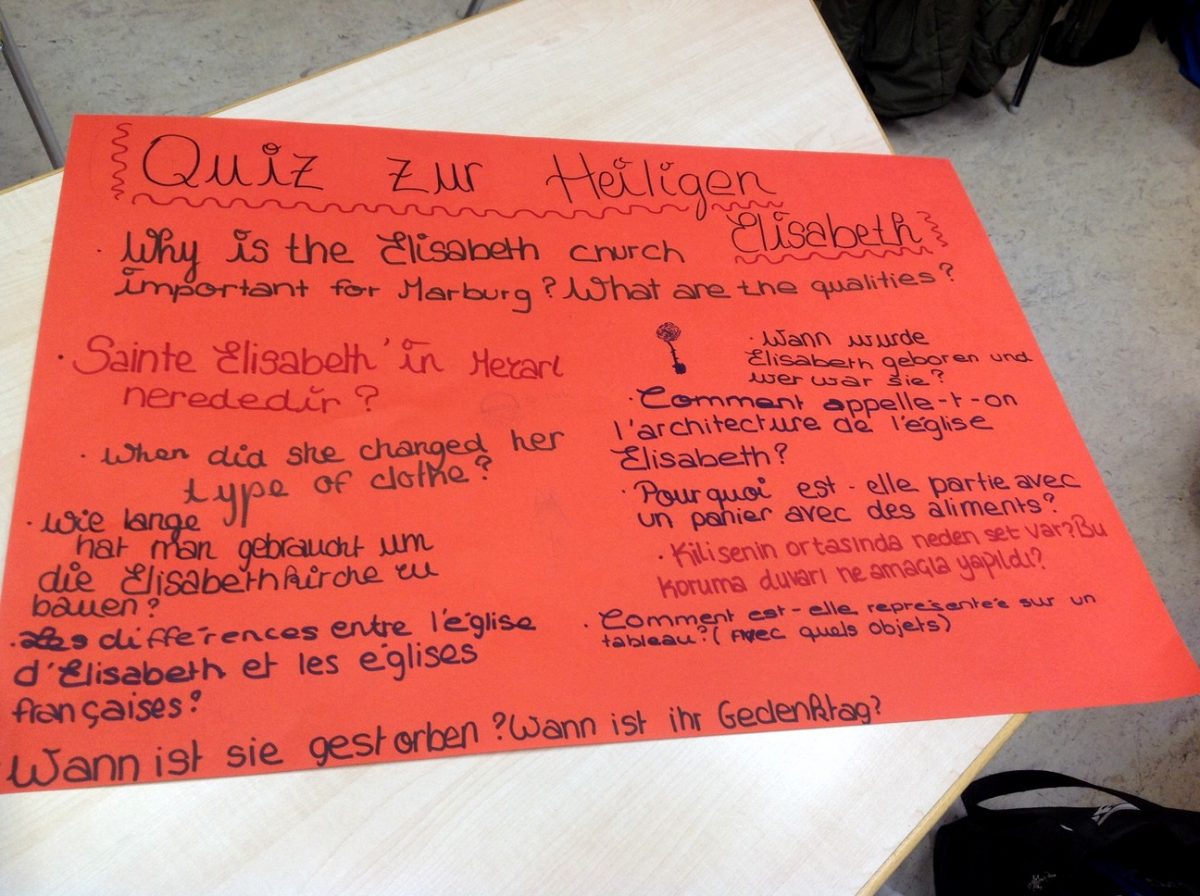 Quiz zur Heiligen
Elisabeth
· Why is the Elisabeth church
important for Marburg? What are the qualities?
· Sainte Elisabeth'in Mezarı
nerededir?
· When did she changed her
type of clothe?
· Wie lange
hat man gebraucht um
die Elisabethkirche zu
bauen?
· Les différences entre l'église
d'Elisabeth et les églises
françaises?
· Wann wurde
Elisabeth geboren und
wer war sie?
· Comment appelle-t-on
l'architecture de l'église
Elisabeth?
· Pourquoi est-elle partie avec
un panier avec des aliments?
· Kilisenin ortasında neden set var? Bu
koruma duvarı ne amaçla yapıldı?
· Comment est-elle représentée sur un
tableau? (Avec quels objets)
· Wann ist sie gestorben? Wann ist ihr Gedenktag?